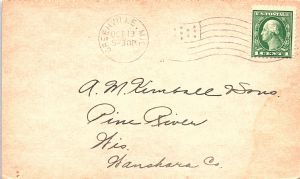 GREENVILLE, MIC
OCT 13
5-3 PM
U.S. POSTAGE
1 CENT 1
A. M. Kimball & Sons.
Pine River
Wis.
Wanshara Co.